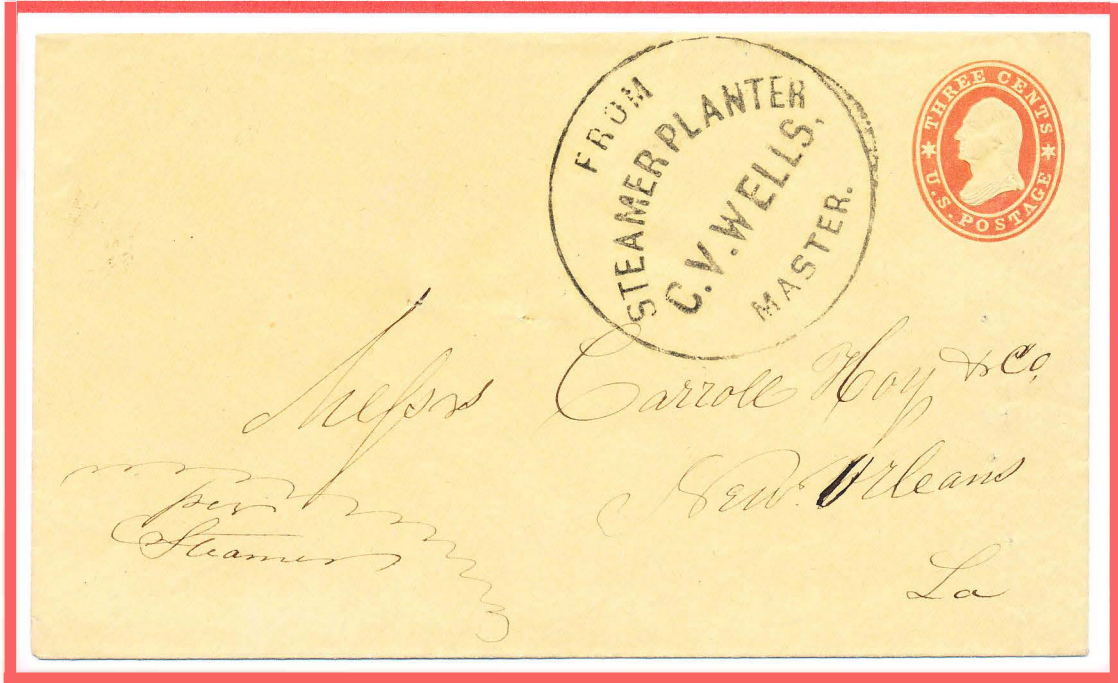 FROM
STEAMER PLANTER
C.V. WELLS,
MASTER.
THREE CENTS
U.S. POSTAGE
Messrs Carroll Hoy & Co,
New Orleans
La
per
Steamer